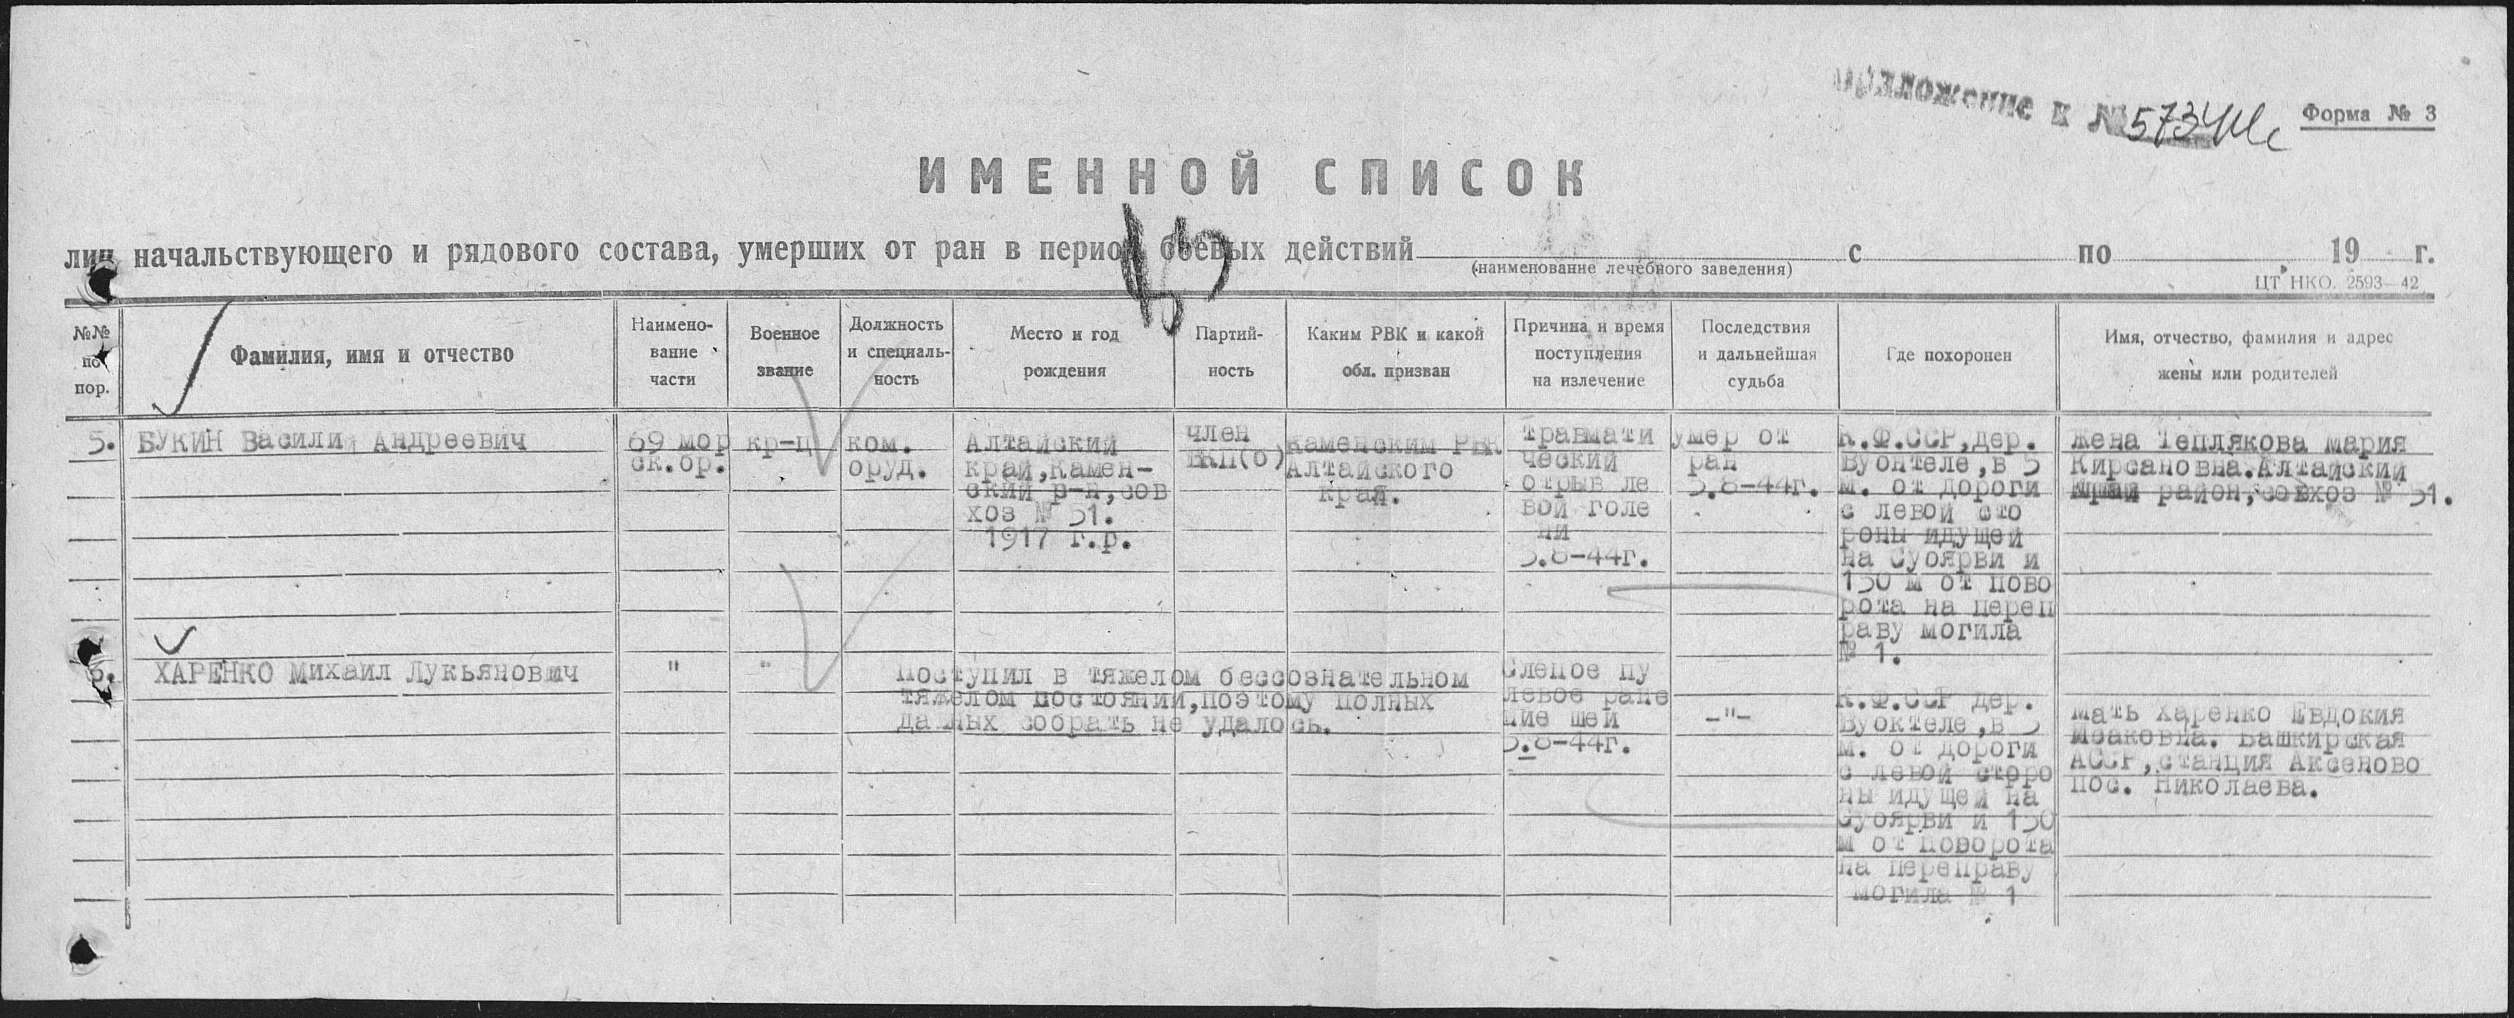 приложение к № 5734
Форма № 3
ИМЕННОЙ СПИСОК
лиц начальствующего и рядового состава, умерших от ран в период боевых действий с по 19 г.
(наименование лечебного заведения)
ЦТ НКО. 2593—42
№№ по пор.
Фамилия, имя и отчество
Наимено-
вание
части
Военное
звание
Должность
и специаль-
ность
Место и год
рождения
Партий-
ность
Каким РВК и какой
обл. призван
Причина и время
поступления
на излечение
Последствия
и дальнейшая
судьба
Где похоронен
Имя, отчество, фамилия и адрес
жены или родителей
5.
БУКИН Василий Андреевич
69 мор
ск.бр.
кр-ц
ком.
оруд.
Алтайский
край,Камен-
ский р-н,сов
хоз № 51.
1917 г.р.
член
ВКП(б)
Каменским РВК
Алтайского
края.
травмати
ческий
отрыв ле
вой голе
ни
5.8-44г.
умер от
ран
5.8-44г.
К.Ф.ССР,дер.
Вуоктеле,в 5
м. от дороги
с левой сто
роны идущей
на Суоярви и
150 м от пово
рота на переп
раву могила
№ 1.
жена Теплякова Мария
Кирсановна.Алтайский
край район,совхоз № 51.
6.
ХАРЕНКО Михаил Лукьянович
"
"
Поступил в тяжелом бессознательном
тяжелом состоянии,поэтому полных
данных собрать не удалось.
Слепое пу
левое ране
ние шеи
5.8-44г.
-"-
К.Ф.ССР дер.
Вуоктеле,в 5
м. от дороги
с левой сторо
ны идущей на
Суоярви и 150
м от поворота
на переправу
могила № 1
мать Харенко Евдокия
Исаковна. Башкирская
АССР,станция Аксеново
пос. Николаева.